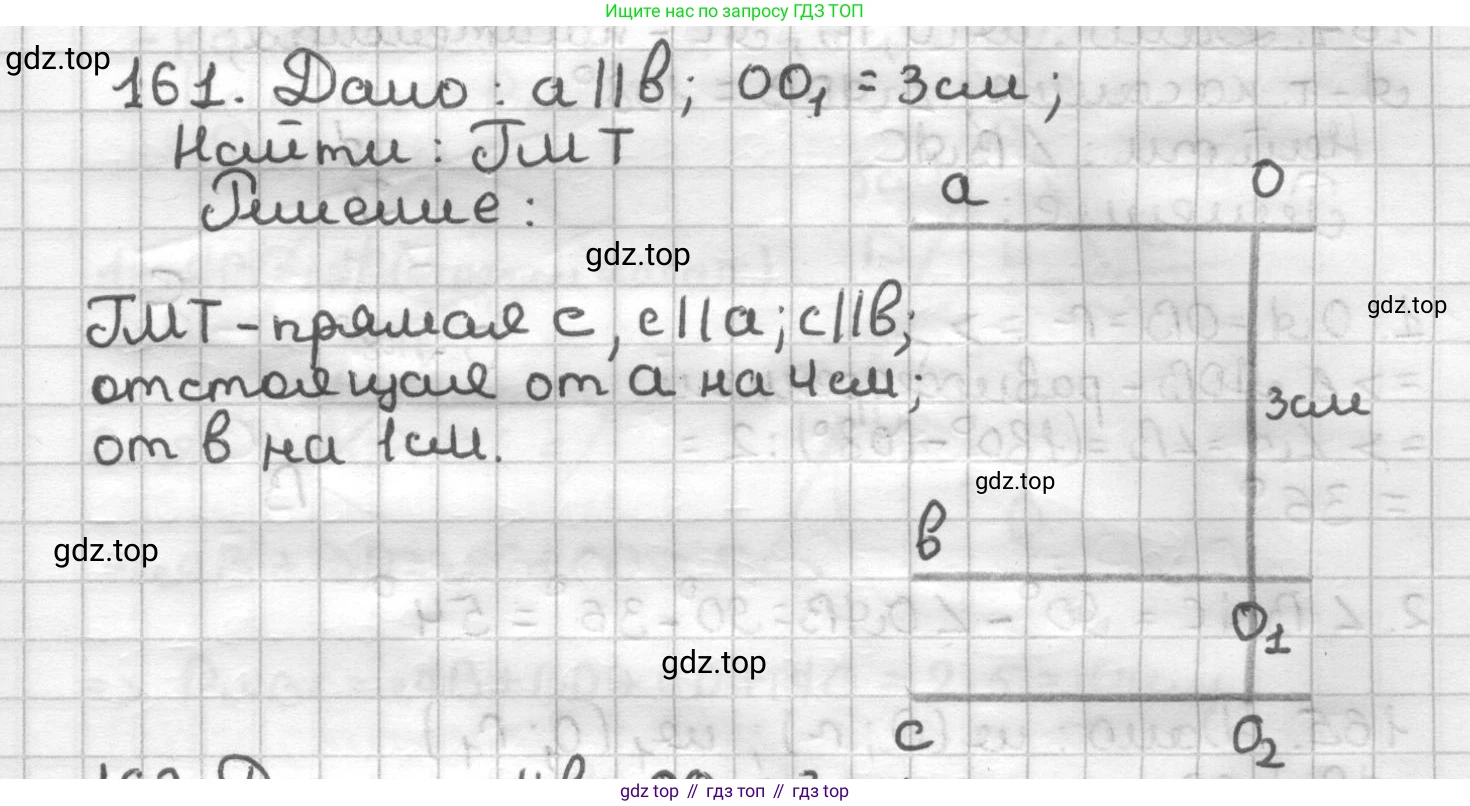 Ищите нас по запросу ГДЗ ТОП
gdz.top
161. Дано: a||b; OO₁ = 3см;
Найти: ГМТ
Решение:
a
O
gdz.top
ГМТ - прямая c, c||a; c||b;
gdz.top
отстоящая от a на 4см;
3см
от b на 1см.
gdz.top
b
gdz.top
O₁
gdz.top
c
O₂
gdz.top // гдз топ // gdz top